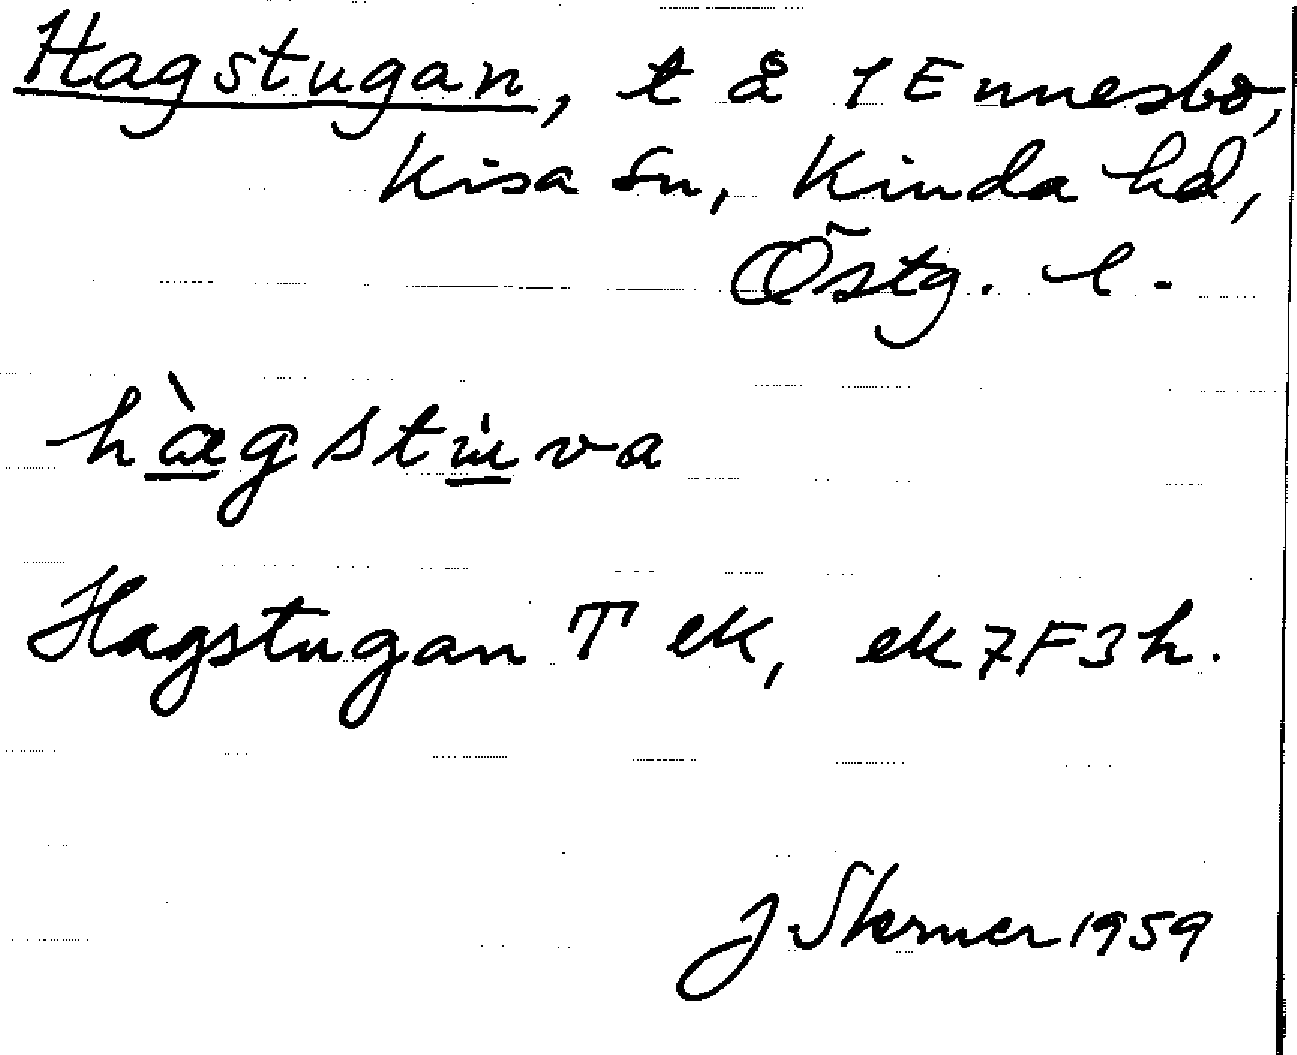 Hagstugan, t å 1 Ennesbo,
Kisa sn, Kinda hd,
Östg. l.
hàgstu̇va
Hagstugan T ek, ek 7F3h.
1959